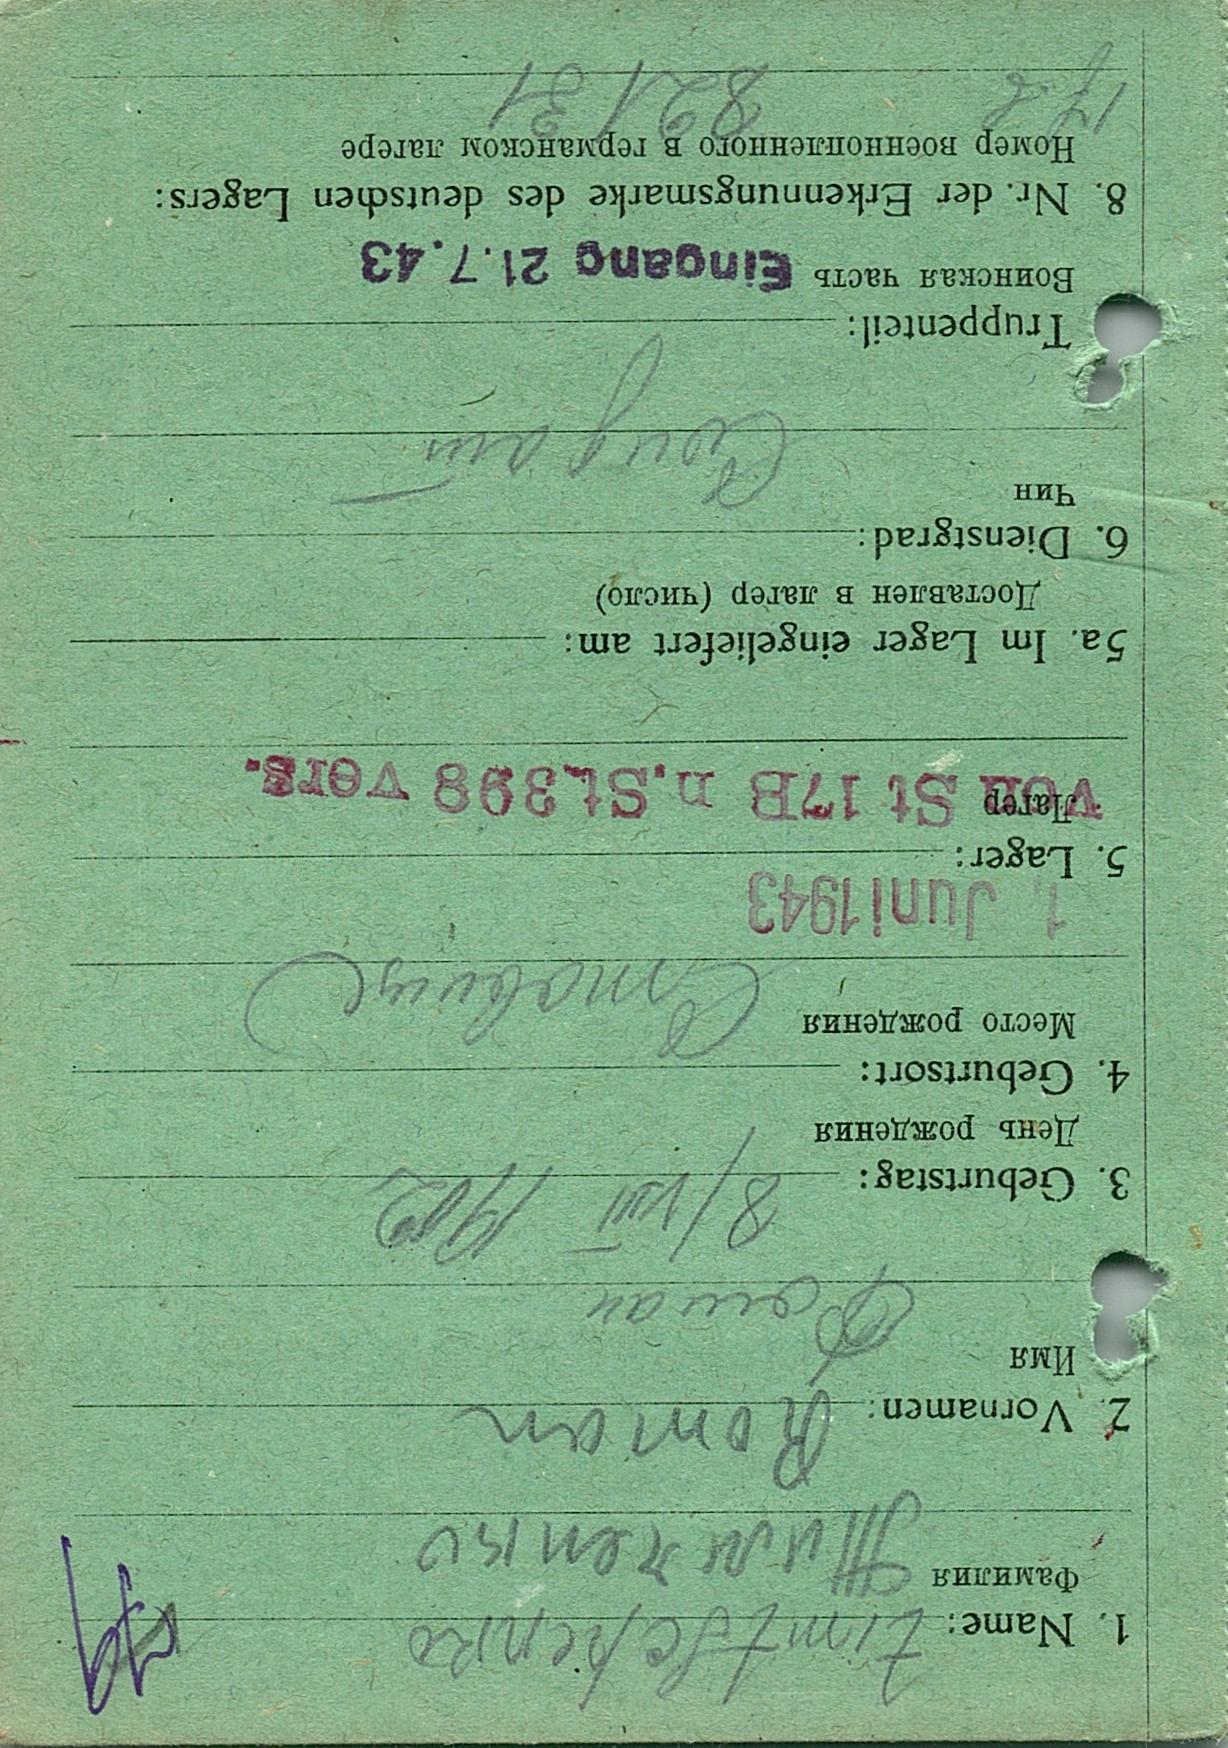 1. Name: Timtschenko
Фамилия Тимченко
2. Vornamen: Roman
Имя Роман
3. Geburtstag: 8/VIII 1902
День рождения
4. Geburtsort:
Место рождения
1. Juni 1943
5. Lager:
Лагер von St 17B n. St. 398 vers.
5a. Im Lager eingeliefert am:
Доставлен в лагер (число)
6. Dienstgrad:
Чин Солдат
Truppenteil:
Воинская часть Eingang 21.7.43
8. Nr. der Erkennungsmarke des deutschen Lagers:
Номер военнопленного в германском лагере